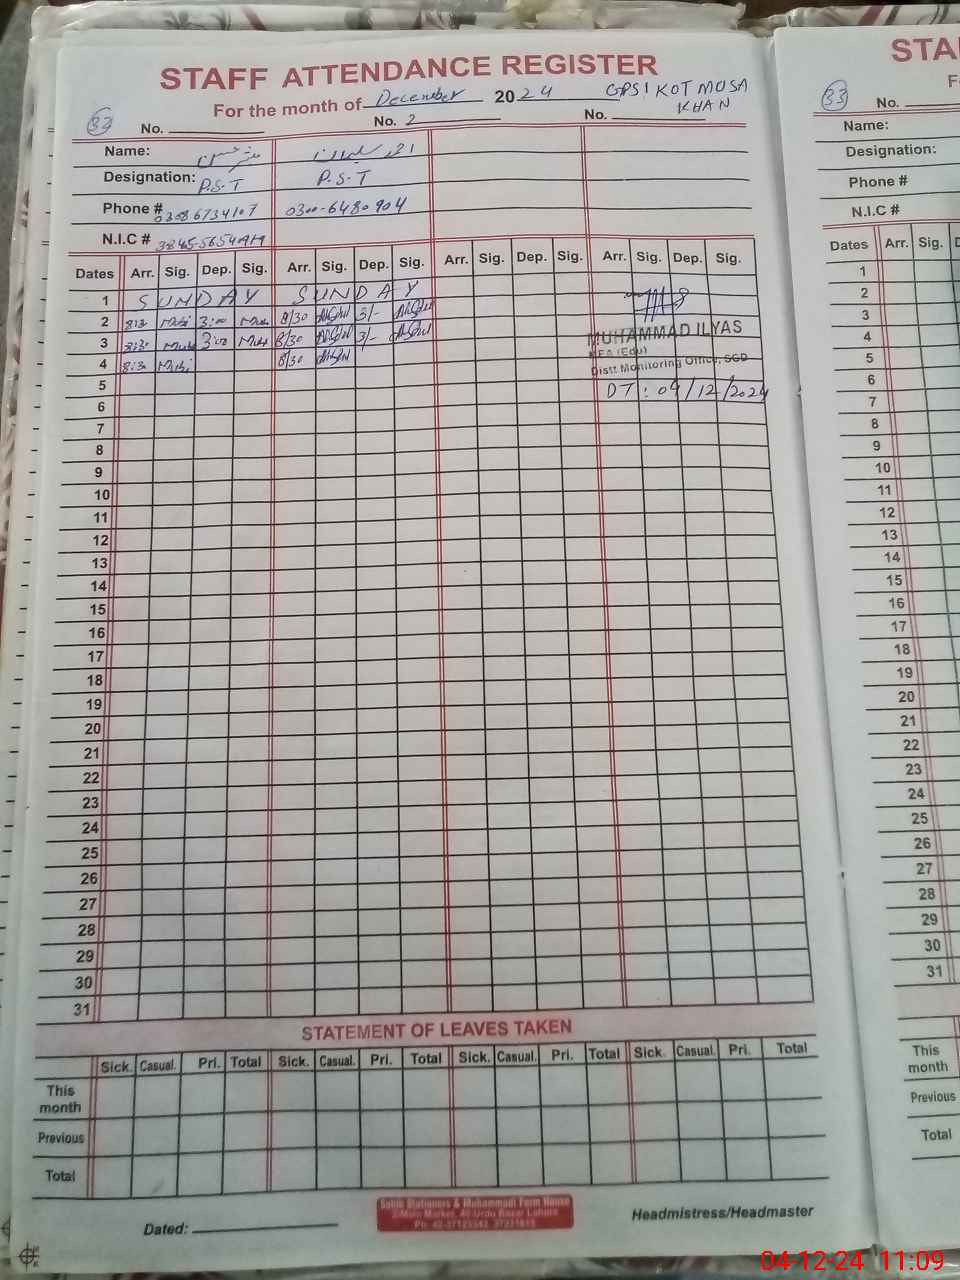 STAFF ATTENDANCE REGISTER
For the month of December 2024 GPS! KOT MUSA KHAN
33 No. No. 2 No.
Name:
Designation: P.S.T P.S.T
Phone # 03086734107 0300-6480904
N.I.C #
Dates Arr. Sig. Dep. Sig. Arr. Sig. Dep. Sig. Arr. Sig. Dep. Sig. Arr. Sig. Dep. Sig.
1 SUNDAY SUNDAY
2 8:30 3:00 8/30 3/-
3 8:30 3:00 8/30 3/-
4 8:30 8/30
MUHAMMAD ILYAS
MEA (Edu)
Distt Monitoring Office, SGD
DT: 04/12/2024
5
6
7
8
9
10
11
12
13
14
15
16
17
18
19
20
21
22
23
24
25
26
27
28
29
30
31
STATEMENT OF LEAVES TAKEN
Sick. Casual. Pri. Total Sick. Casual. Pri. Total Sick. Casual. Pri. Total Sick. Casual. Pri. Total
This month
Previous
Total
Dated: Headmistress/Headmaster
STA
F
33 No.
Name:
Designation:
Phone #
N.I.C #
Dates Arr. Sig. D
1
2
3
4
5
6
7
8
9
10
11
12
13
14
15
16
17
18
19
20
21
22
23
24
25
26
27
28
29
30
31
Sick. Casual.
This month
Previous
Total
04-12-24 11:09